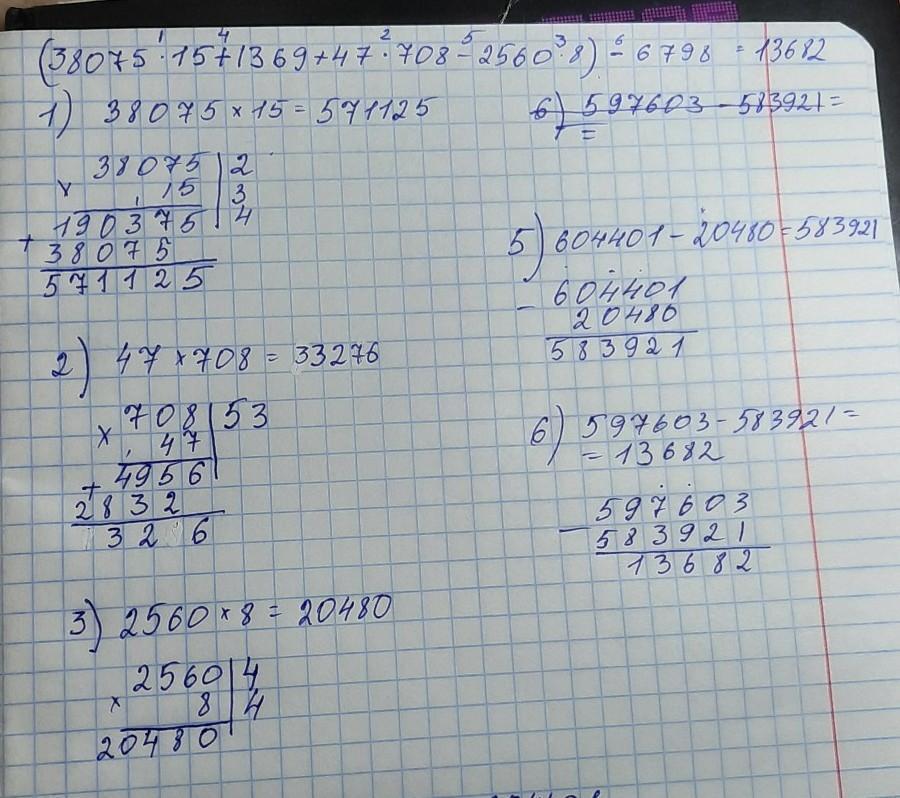 (38075 · 15 + 1369 + 47 · 708 - 2560 · 8) - 6798 = 13682
1) 38075 × 15 = 571125
38075 | 2
× 15 | 3
190375 | 4
+ 38075
571125
2) 47 × 708 = 33276
708 | 53
× 47
+ 4956
2832
32 6
3) 2560 × 8 = 20480
2560 | 4
× 8 | 4
20480
6) 597603 - 583921 =
=
5) 604401 - 20480 = 583921
- 604401
20480
583921
6) 597603 - 583921 =
= 13682
- 597603
583921
13682